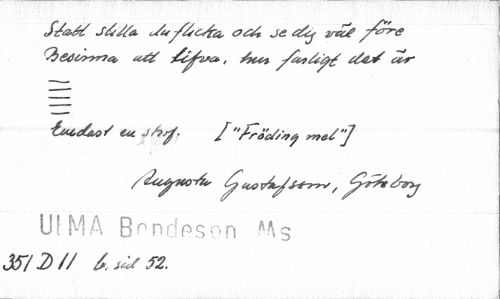 Statt stilla du flicka och se dig väl före
Besinna att lifva, hur farligt det är
Endast en strof. ["Fröding mel"]
Augusta Gustafsson, Göteborg
ULMA Bondeson Ms
351 D 11 b, sid 52.